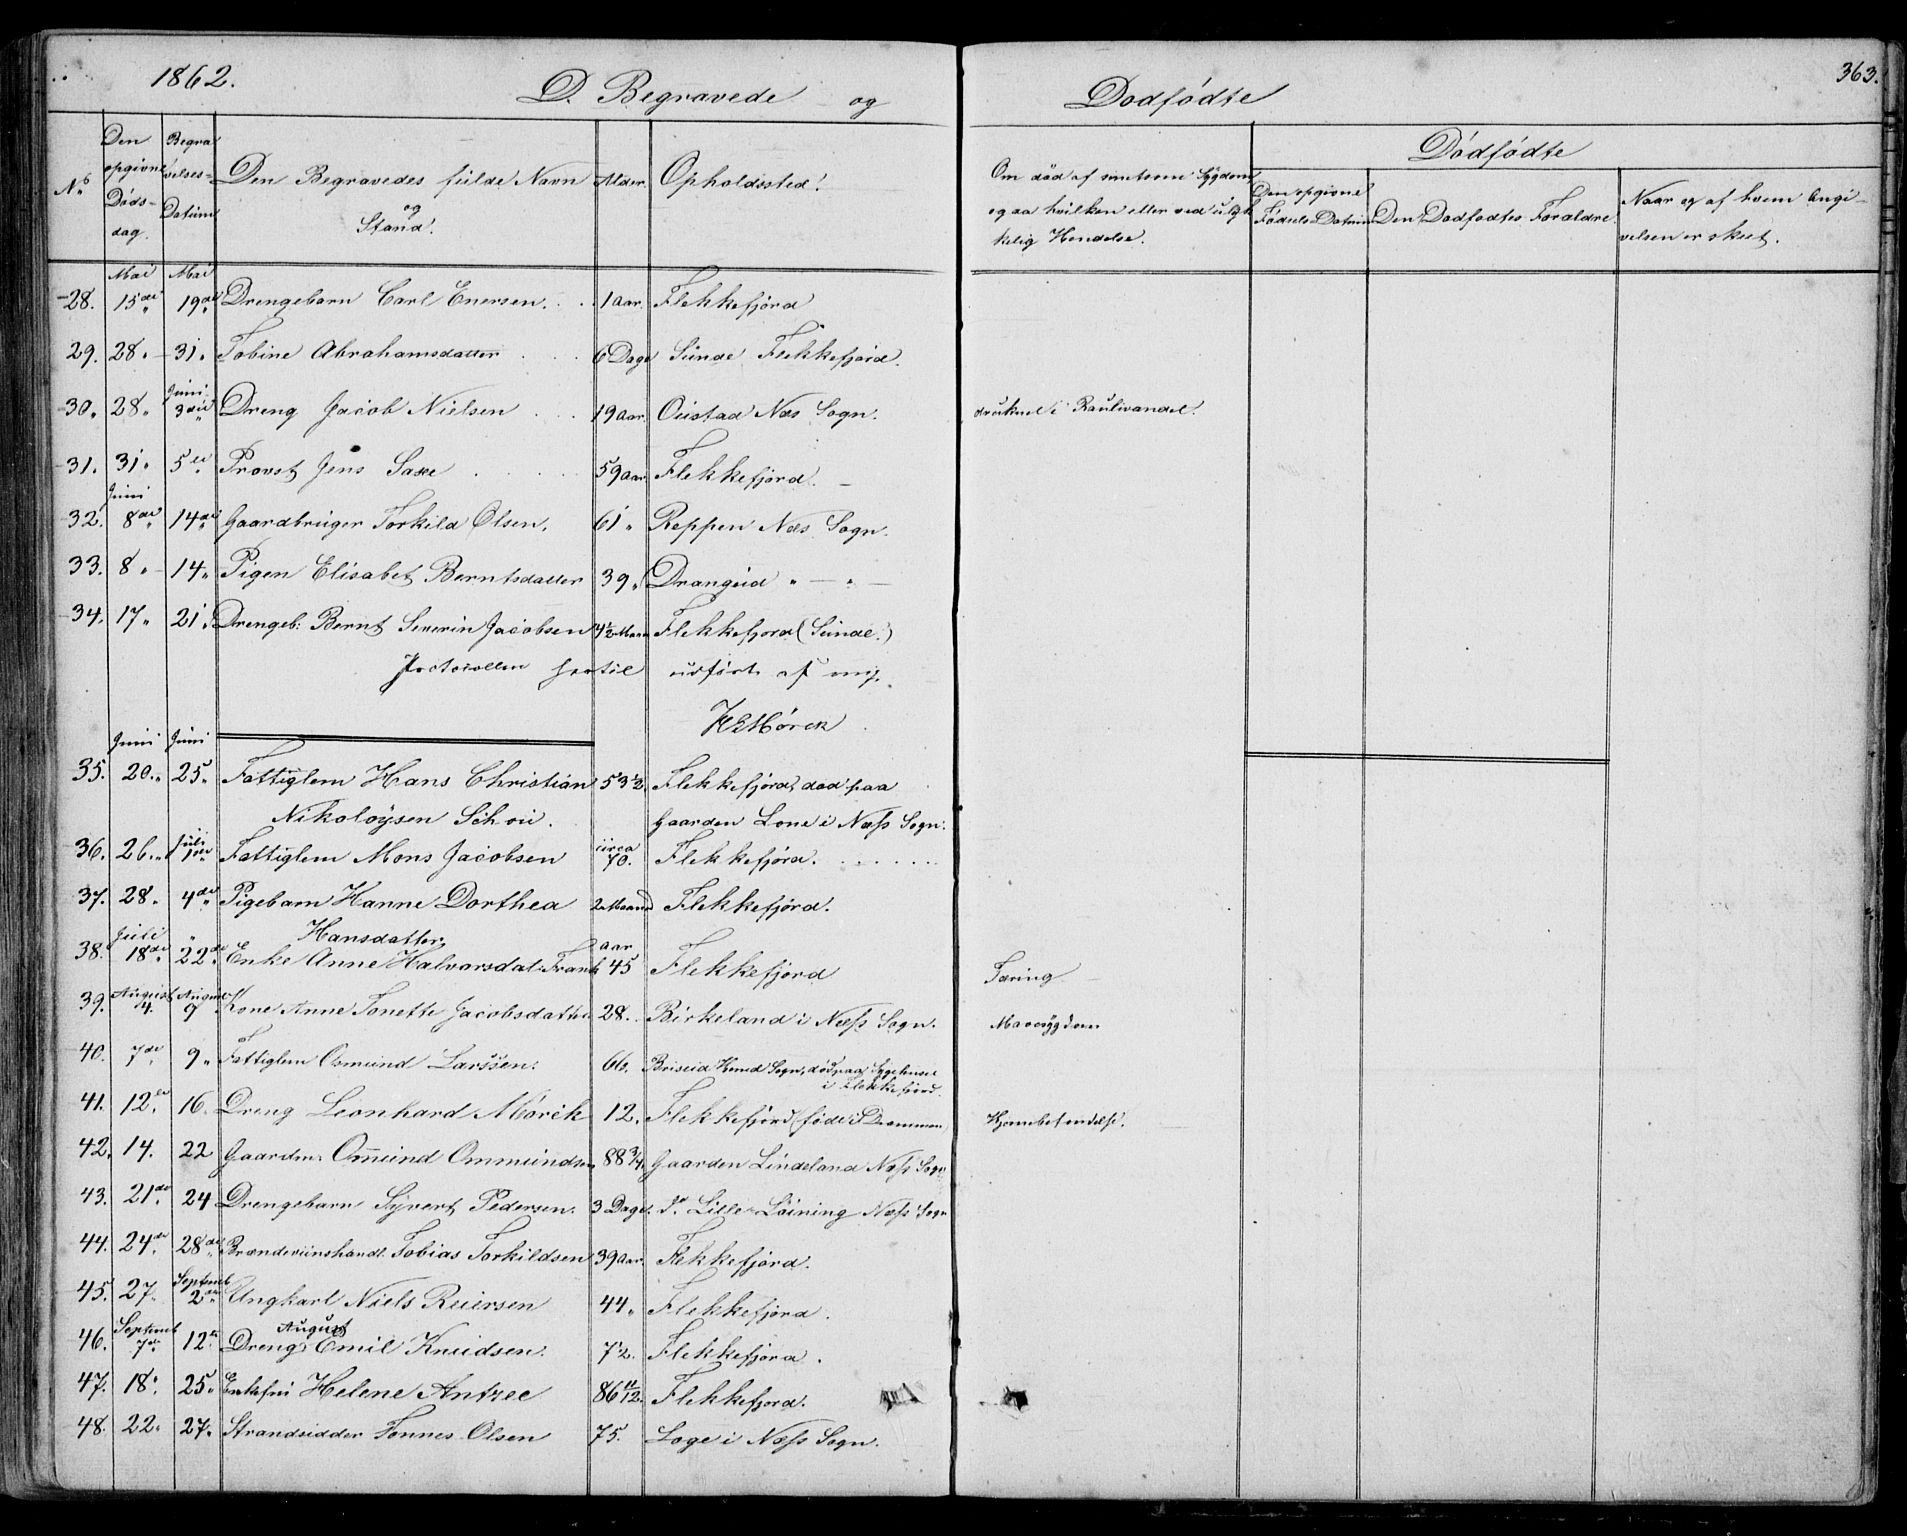 1862.
D. Begravede og Dödfödte
363.
No.
Den opgivne Döds-dag.
Begravelses-Datum
Den Begravedes fulde Navn og Stand.
Alder.
Opholdssted.
Om död af smitsom Sygdom,
og aa hvilken eller ved ulyk-
kelig Hendelse.
Dödfödte
Den opgivne Födsels Datum
Den Dödfödtes Forældre.
Naar og af hvem Angi-
velsen er skeet.
Mai Mai
28. 15de 19de Drengebarn Carl Enersen. 1 aar. Flekkefjord
29. 28. 31. Tobine Abrahamsdatter 6 Dage Sunde Flekkefjord.
Juni
30. 28. 3die Dreng Jacob Nielsen 19 aar. Oustad Næs Sogn. druknet i Raulivandet.
31. 31. 5te Provst Jens Saxe 59 aar. Flekkefjord.
Juni
32. 8de 14de Gaardbruger Torkild Olsen. 61 " Reppen Næs Sogn.
33. 8. 14. Pigen Elisabet Berntsdatter 39 " Drangeid " — " —
34. 17. 21. Drengeb: Bernt Severin Jacobsen 4½ Maan Flekkefjord (Sunde.)
Protocollen hertil udfört af mig.
Mörck
Juni Juni
35. 20. 25. Fattiglem Hans Christian 53½. Flekkefjord, död paa
Nikolöysen Schou. Gaarden Lone i Næss Sogn.
Juli circa
36. 26. 1ste Fattiglem Mons Jacobsen 70. Flekkefjord.
37. 28. 4de Pigebarn Hanne Dorthea 2 Maaned Flekkefjord.
Juli " Hansdatter. aar
38. 18de 22de Enke Anne Halvorsdat. Frank 45 Flekkefjord Tæring
August August
39. 4. 9 Kone Anne Tonette Jacobsdatter 28. Birkeland i Næss Sogn. Mavesygdom
40. 7de 9. Fattiglem Osmund Larssen. 66. Briseid Herred Sogn, död paa Sygehuset
i Flekkefjord.
41. 12te 16. Dreng Leonhard Mörck 12. Flekkefjord (född i Drammen) Hjernebetendelse.
42. 14. 22 Gaardm. Ommund Ommundsen 88 3/4. Gaarden Lindeland Næss Sogn
43. 21de 24 Drengebarn Syvert Pedersen. 3 Dage. Do. Lille-Löining Næss Sogn
44. 24de 28de Brændeviinshandl. Tobias Torkildsen 39 aar. Flekkefjord.
Septemb
45. 27. 2den Ungkarl Niels Reiersen 44 " Flekkefjord.
Septemb August
46. 7de 12te Dreng Emil Knudsen. 7½. Flekkefjord.
47. 18. 25. Enkefru Helene Antzee 86 11/12. Flekkefjord.
48. 22. 27. Strandsidder Tönnes Olsen 75. Loge i Næss Sogn.